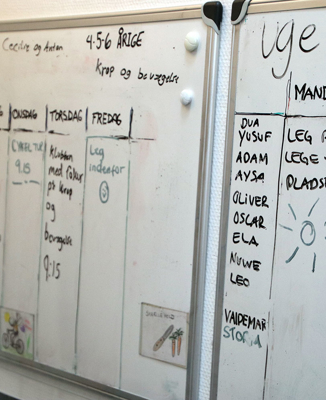 Cecilie og Anton
4-5-6 ÅRIGE
Krop og bevægelse
ONSDAG
TORSDAG
FREDAG
CYKELTUR
9.15
Klatten
med fokus
på krop
og
bevægelse
9:15
Leg
indenfor
uge
MAND
DUA
YUSUF
ADAM
AYSA
OLIVER
OSCAR
ELA
NUWE
LEO
VALDEMAR
STORM
LEG
LEGE
PLADSE